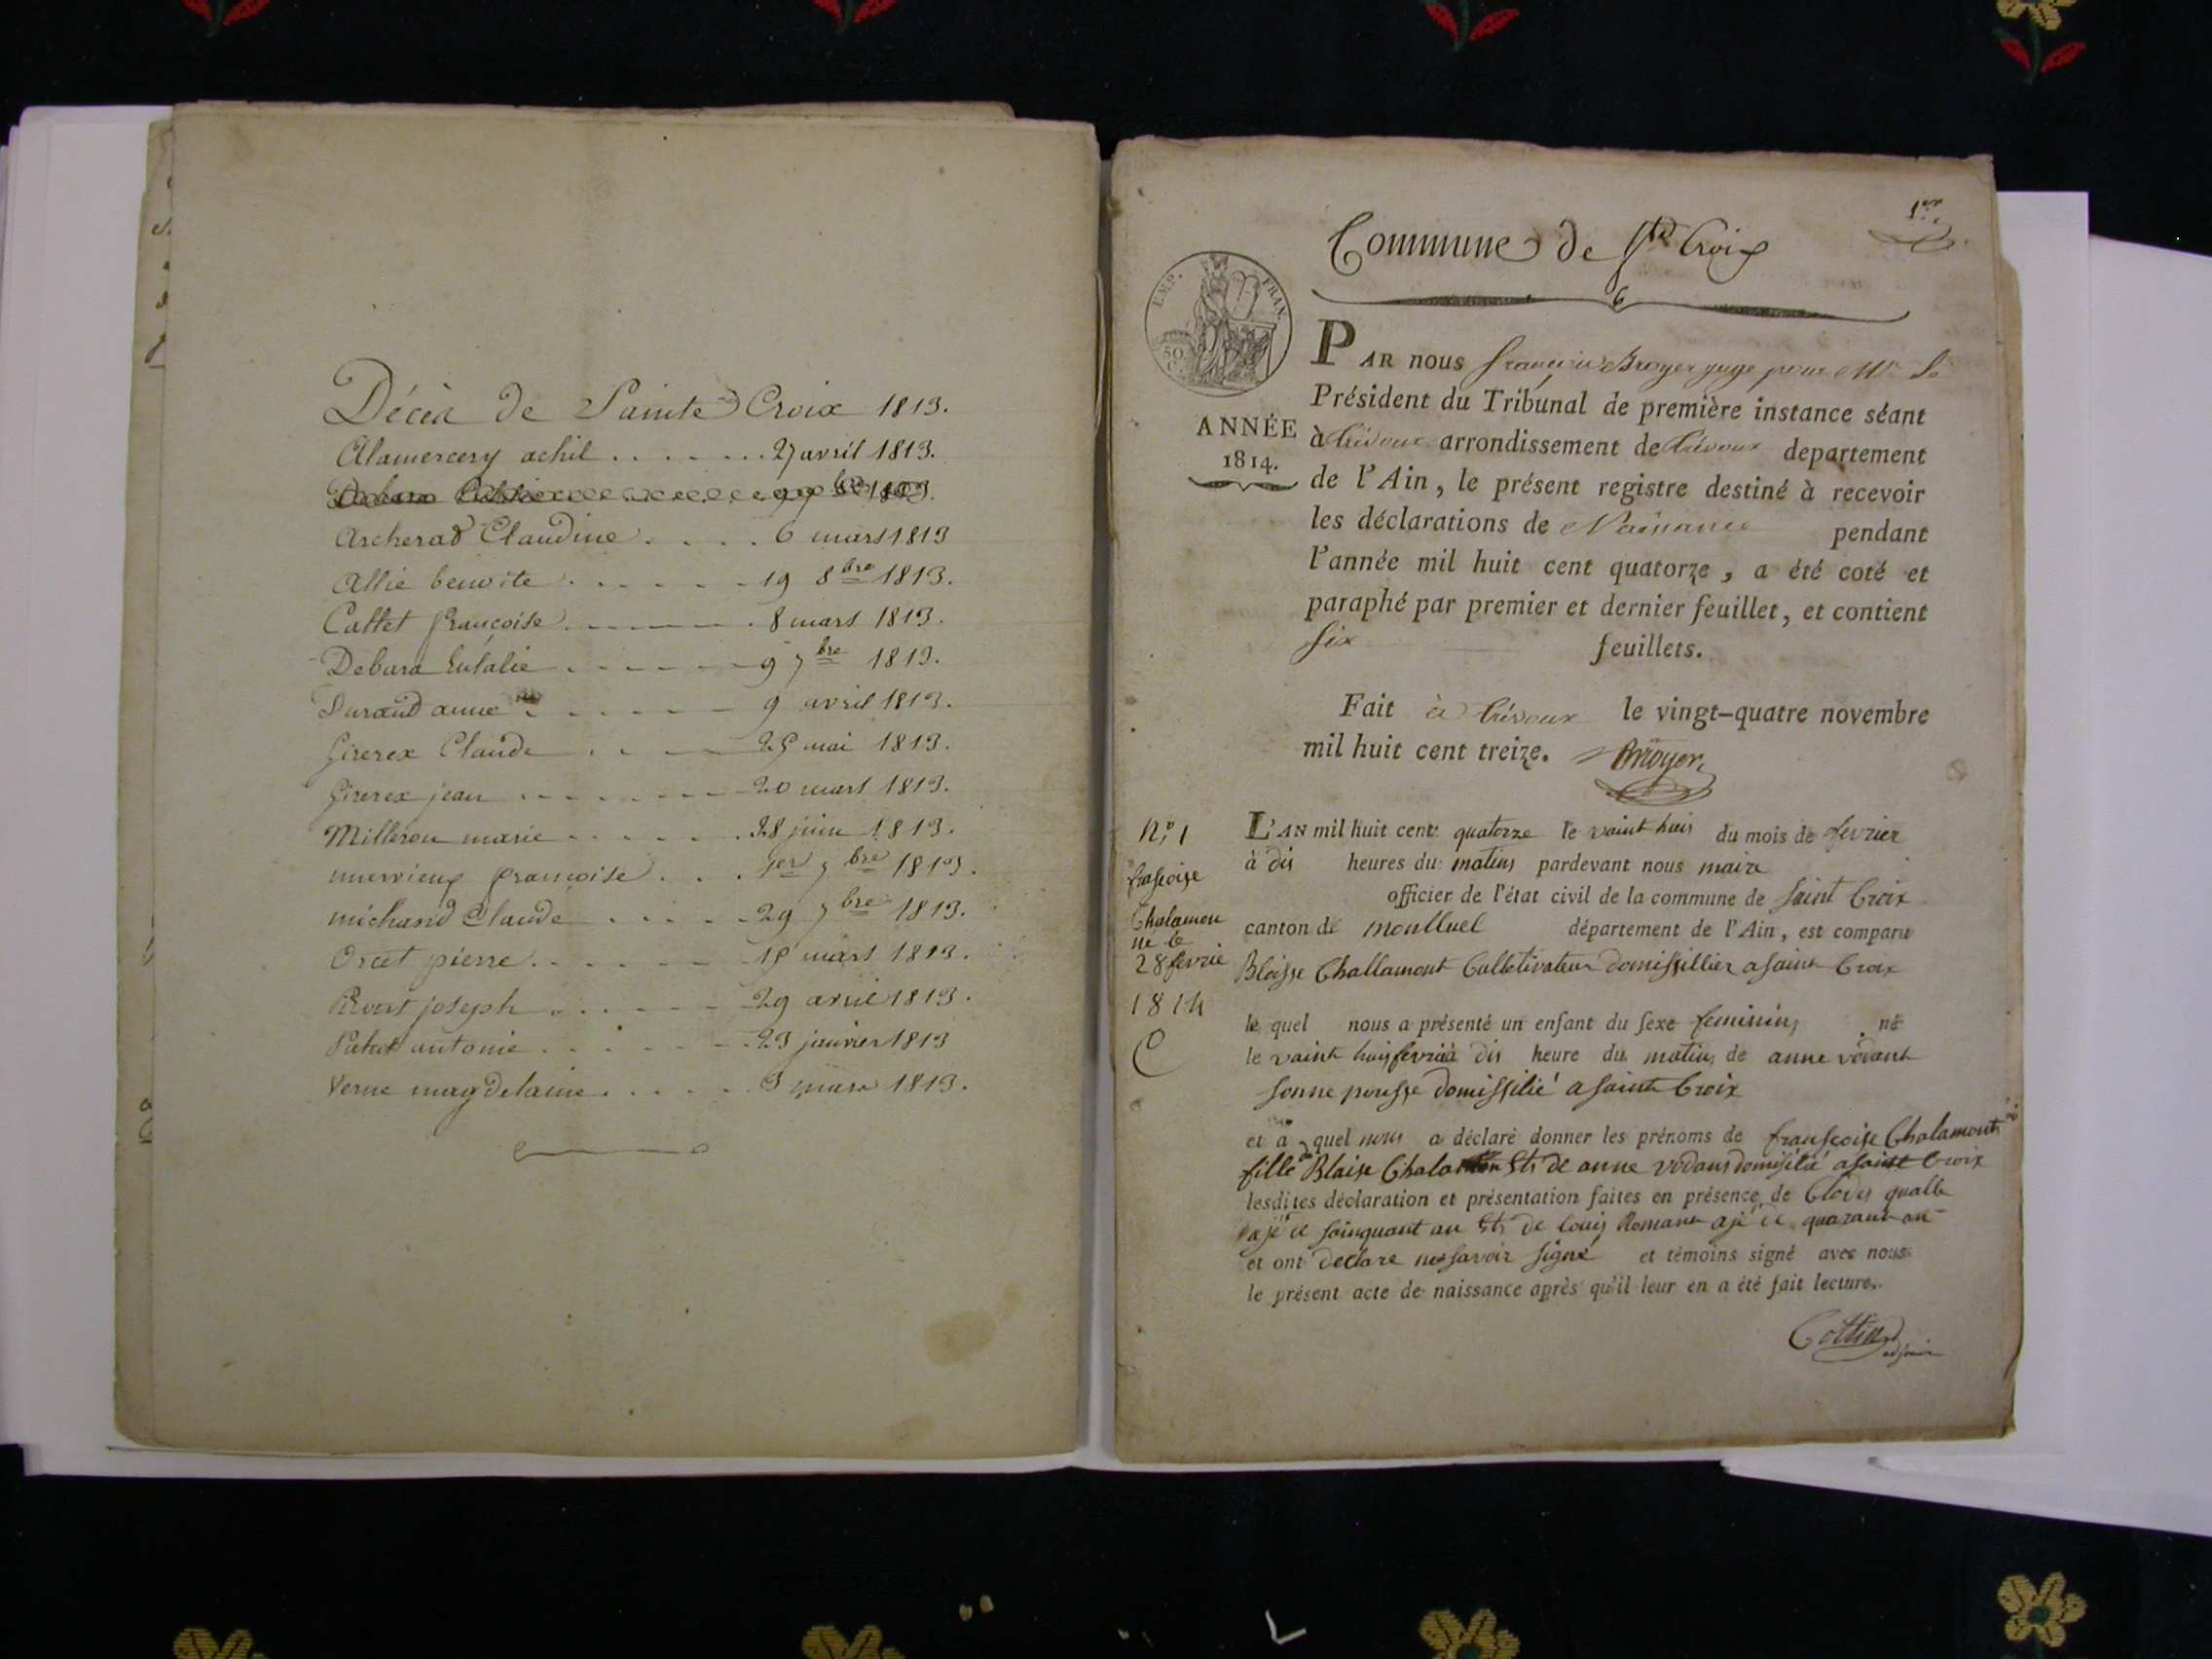 Décès de Sainte Croix 1813.
Alamercery achil . . . . . . . 27 avril 1813.
Archerad Claudine . . . . 6 mars 1813
Allié benoite . . . . . . 19 8bre 1813.
Cattet françoise . . . . 8 mars 1813.
Debura Eulalie . . . . . 9 7bre 1813.
Durand anne . . . . . 9 avril 1813.
Girerex Claude . . . 25 mai 1813.
Girerex jean . . . . . . . 20 mars 1813.
Milleron marie . . . . . 28 juin 1813.
françoise . . . 1er 7bre 1813.
michaud Claude . . . . . 29 7bre 1813.
Orset pierre . . . . . . mars 1813.
joseph . . . . . . 29 avril 1813.
antonie . . . . . . 23 janvier 1813
Verne magdelaine . . . . . mars 1813.
1er
Commune de Ste Croix
EMP. FRAN.
50
C.
ANNÉE
1814.
PAR nous françois Broyer juge pour Mr le
Président du Tribunal de première instance séant
à trévoux arrondissement de trévoux departement
de l'Ain, le présent registre destiné à recevoir
les déclarations de Naissance pendant
l'année mil huit cent quatorze, a été coté et
paraphé par premier et dernier feuillet, et contient
six feuillets.
Fait à trévoux le vingt-quatre novembre
mil huit cent treize. Broyer
N.° 1
fraſoise
Chalamon
ne le
28 fevrie
1814
C
L'AN mil huit cent quatorze le vaint huis du mois de fevrier
à dis heures du matins pardevant nous maire
officier de l'état civil de la commune de saint Croix
canton de monlluel département de l'Ain, est comparu
Blaisse Challamont Culletivateur domissillier a saint Croix
le quel nous a présenté un enfant du sexe feminin, né
le vaint huis fevria à dis heure du matins de anne vódant
sonne pousse domissilié a saint Croix
et a quel nous a déclaré donner les prénoms de franſçoise Chalamont
fille de Blaise Chalamon Et de anne vodans domisilié a saint Croix
lesdites déclaration et présentation faites en présence de Clodes qualle
ajé de sainquant an Et de louis Romans ajé de quarant an
et ont declare ne savoir signé et témoins signé avec nous
le présent acte de naissance après qu'il leur en a été fait lecture.
Cottin
adjoin